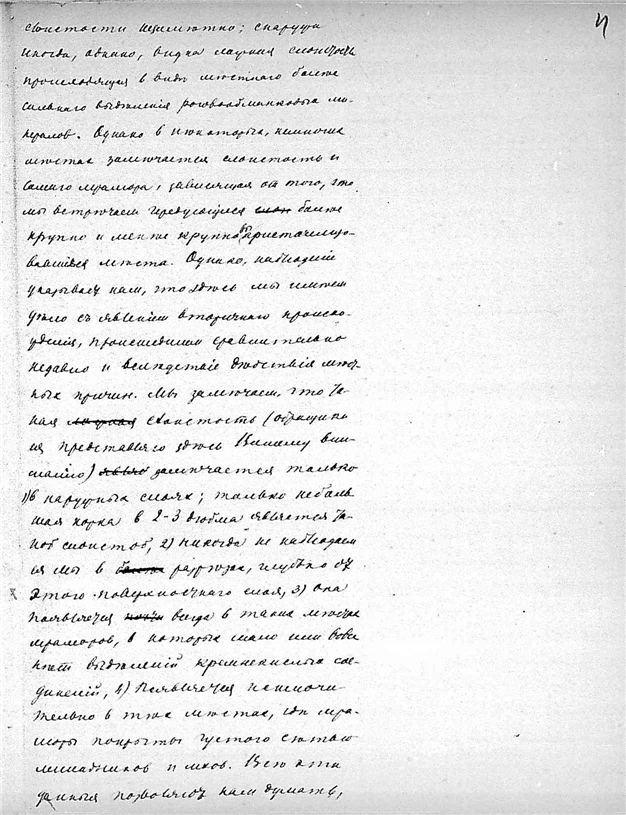 слоистости незаметно; снаружи
иногда, однако, видна ложная слоистость
происходящая в виде местнаго более
сильнаго выделения роговообманковых ми-
нералов. Однако в некоторых, немногих
местах замечается слоистость и
самого мрамора, зависящая от того, что
мы встречаем чередующиеся слои более
крупно и менее крупно выкристаллизо-
вавшияся места. Однако, наблюдения
указывают нам, что здесь мы имеем
дело съ явлением вторичнаго происхо-
ждения, происшедшим сравнительно
недавно и вследствие действия мест-
ных причин. Мы замечаем, что та-
кая слоистость (образцы ко
ея представляю здесь Вашему вни-
манию) замечается только
1) в наружных слоях; только неболь-
шая корка в 2-3 дюйма является та-
кой слоистой, 2) никогда не наблюдаем
ея мы в разрезах, глубже от
этого поверхностнаго слоя, 3) она
появляется почти всегда в таких местах
мраморов, в которых мало или вовсе
нет выделений кремнекислых сое-
динений, 4) Появляется исключи-
тельно в тех местах, где мра-
моры покрыты густого сетью
лишайников и мхов. Все эти
данныя позволяют нам думать,